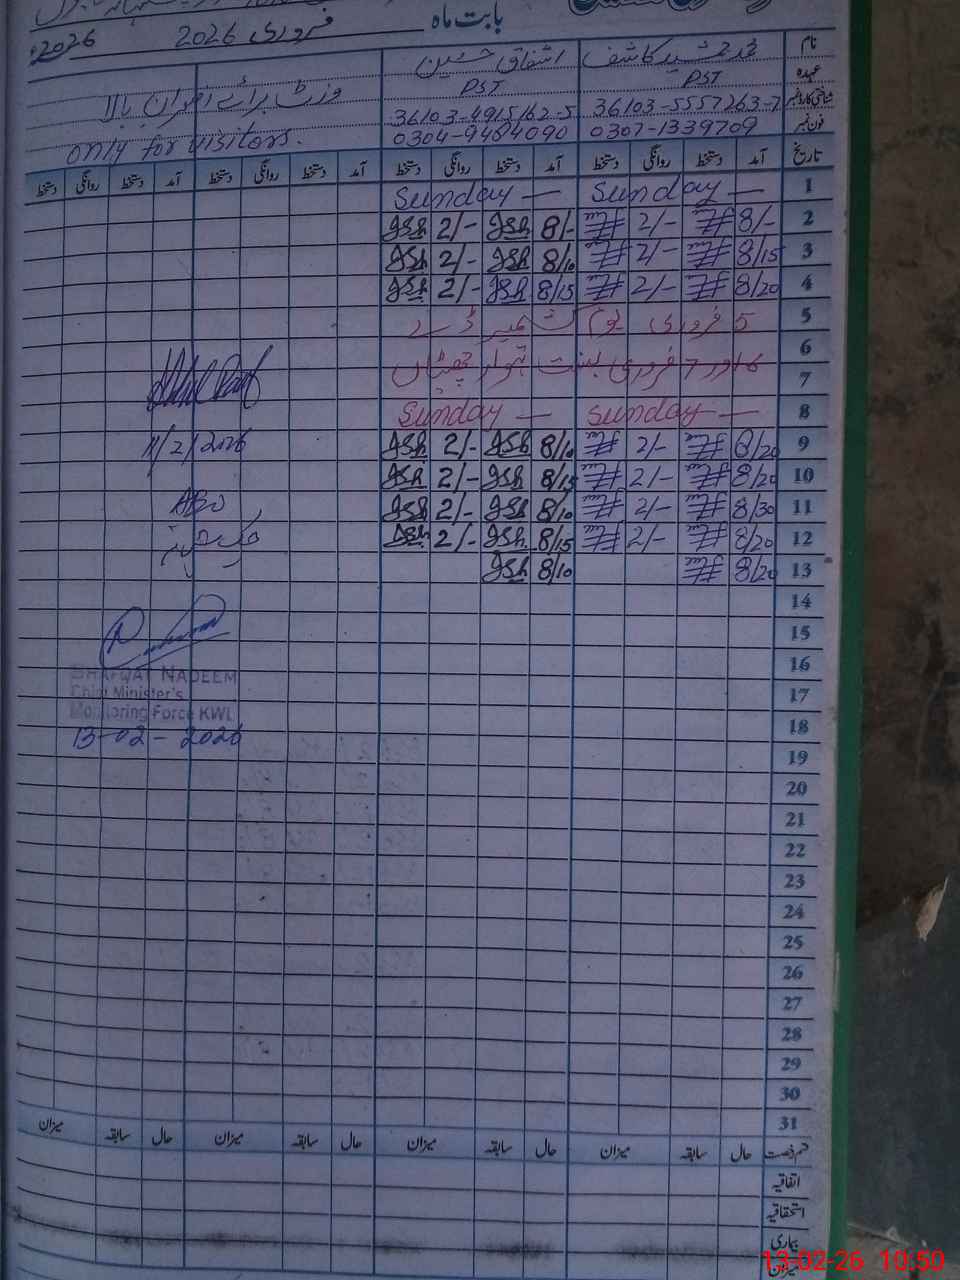 بابت ماہ فروری 2026 2026ء
نام محمد رشید کاشف اشفاق حسین
عہدہ PST PST وزٹ برائے افسران بالا
شناختی کارڈ نمبر 36103-5557263-7 36103-4915162-5
فون نمبر 0307-1339709 0304-9484090 only for visitors.
تاریخ آمد دستخط روانگی دستخط آمد دستخط روانگی دستخط آمد دستخط روانگی دستخط آمد دستخط روانگی دستخط
1 Sunday — Sunday —
2 8/- 2/- 8/- JSh 2/- JSh
3 8/15 2/- 8/10 JSh 2/- JSh
4 8/20 2/- 8/15 JSh 2/- JSh
5 5 فروری یوم کشمیر ڈے
6 6 اور 7 فروری بسنت تہوار چھٹیاں
7
8 Sunday — Sunday —
9 8/20 2/- 8/10 JSh 2/- JSh 11/2/2026
10 8/20 2/- 8/15 JSh 2/- JSh
11 8/30 2/- 8/10 JSh 2/- JSh
12 8/20 2/- 8/15 JSh 2/- JSh
13 8/20 8/10 JSh
14
15
16
SHAFQAT NADEEM
17
Chief Minister's
Monitoring Force KWL
18
13-02-2026
19
20
21
22
23
24
25
26
27
28
29
30
31
حال سابقہ میزان حال سابقہ میزان حال سابقہ میزان حال سابقہ میزان
اتفاقیہ
استحقاقیہ
بیماری
میزان
13-02-26 10:50